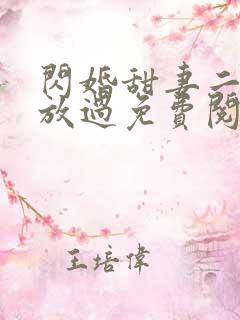 閃婚甜妻二
放過免費閱
王培偉